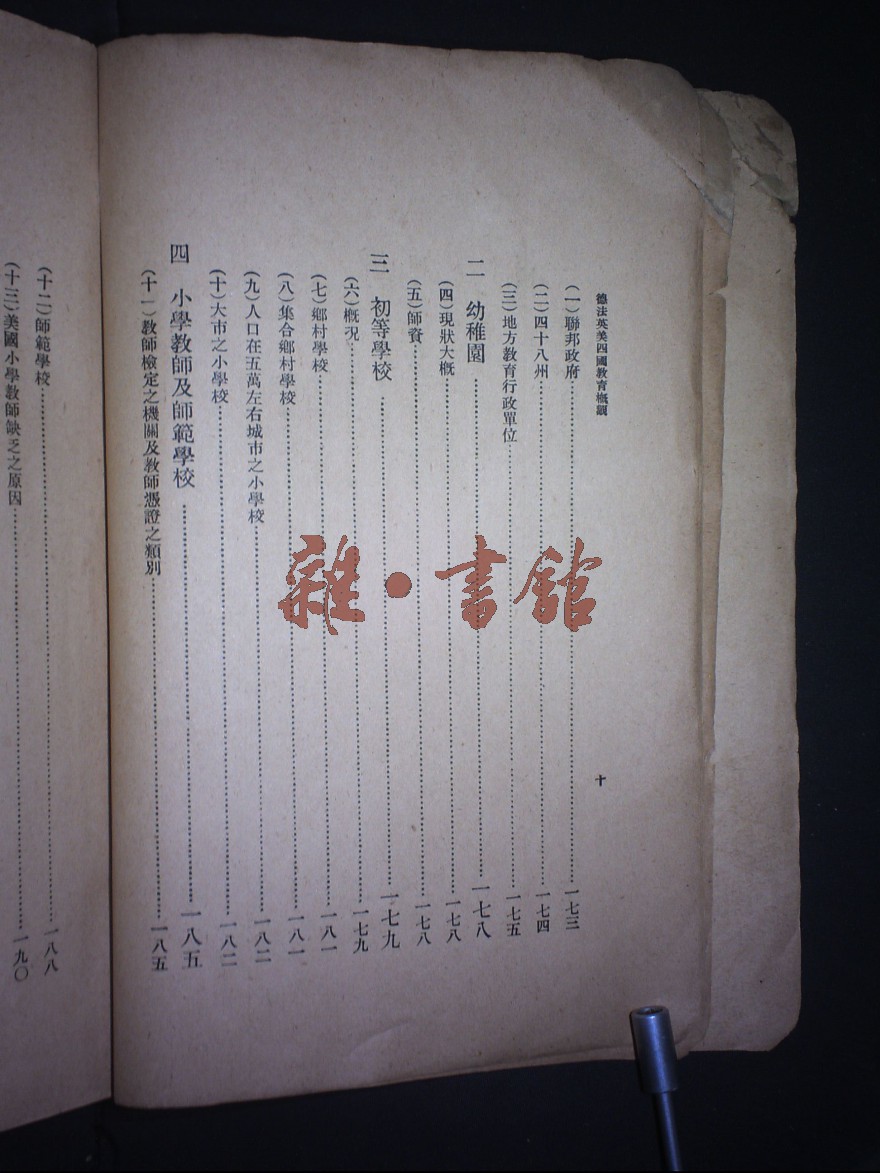 德法英美四國教育概觀
十
(一)聯邦政府……一七三
(二)四十八州……一七四
(三)地方教育行政單位……一七五
二 幼稚園……一七八
(四)現狀大概……一七八
(五)師資……一七八
三 初等學校……一七九
(六)概況……一七九
(七)鄉村學校……一八一
(八)集合鄉村學校……一八一
(九)人口在五萬左右城市之小學校……一八二
(十)大市之小學校……一八二
四 小學教師及師範學校……一八五
(十一)教師檢定之機關及教師憑證之類別……一八五
(十二)師範學校……一八八
(十三)美國小學教師缺乏之原因……一九〇
雜·書館